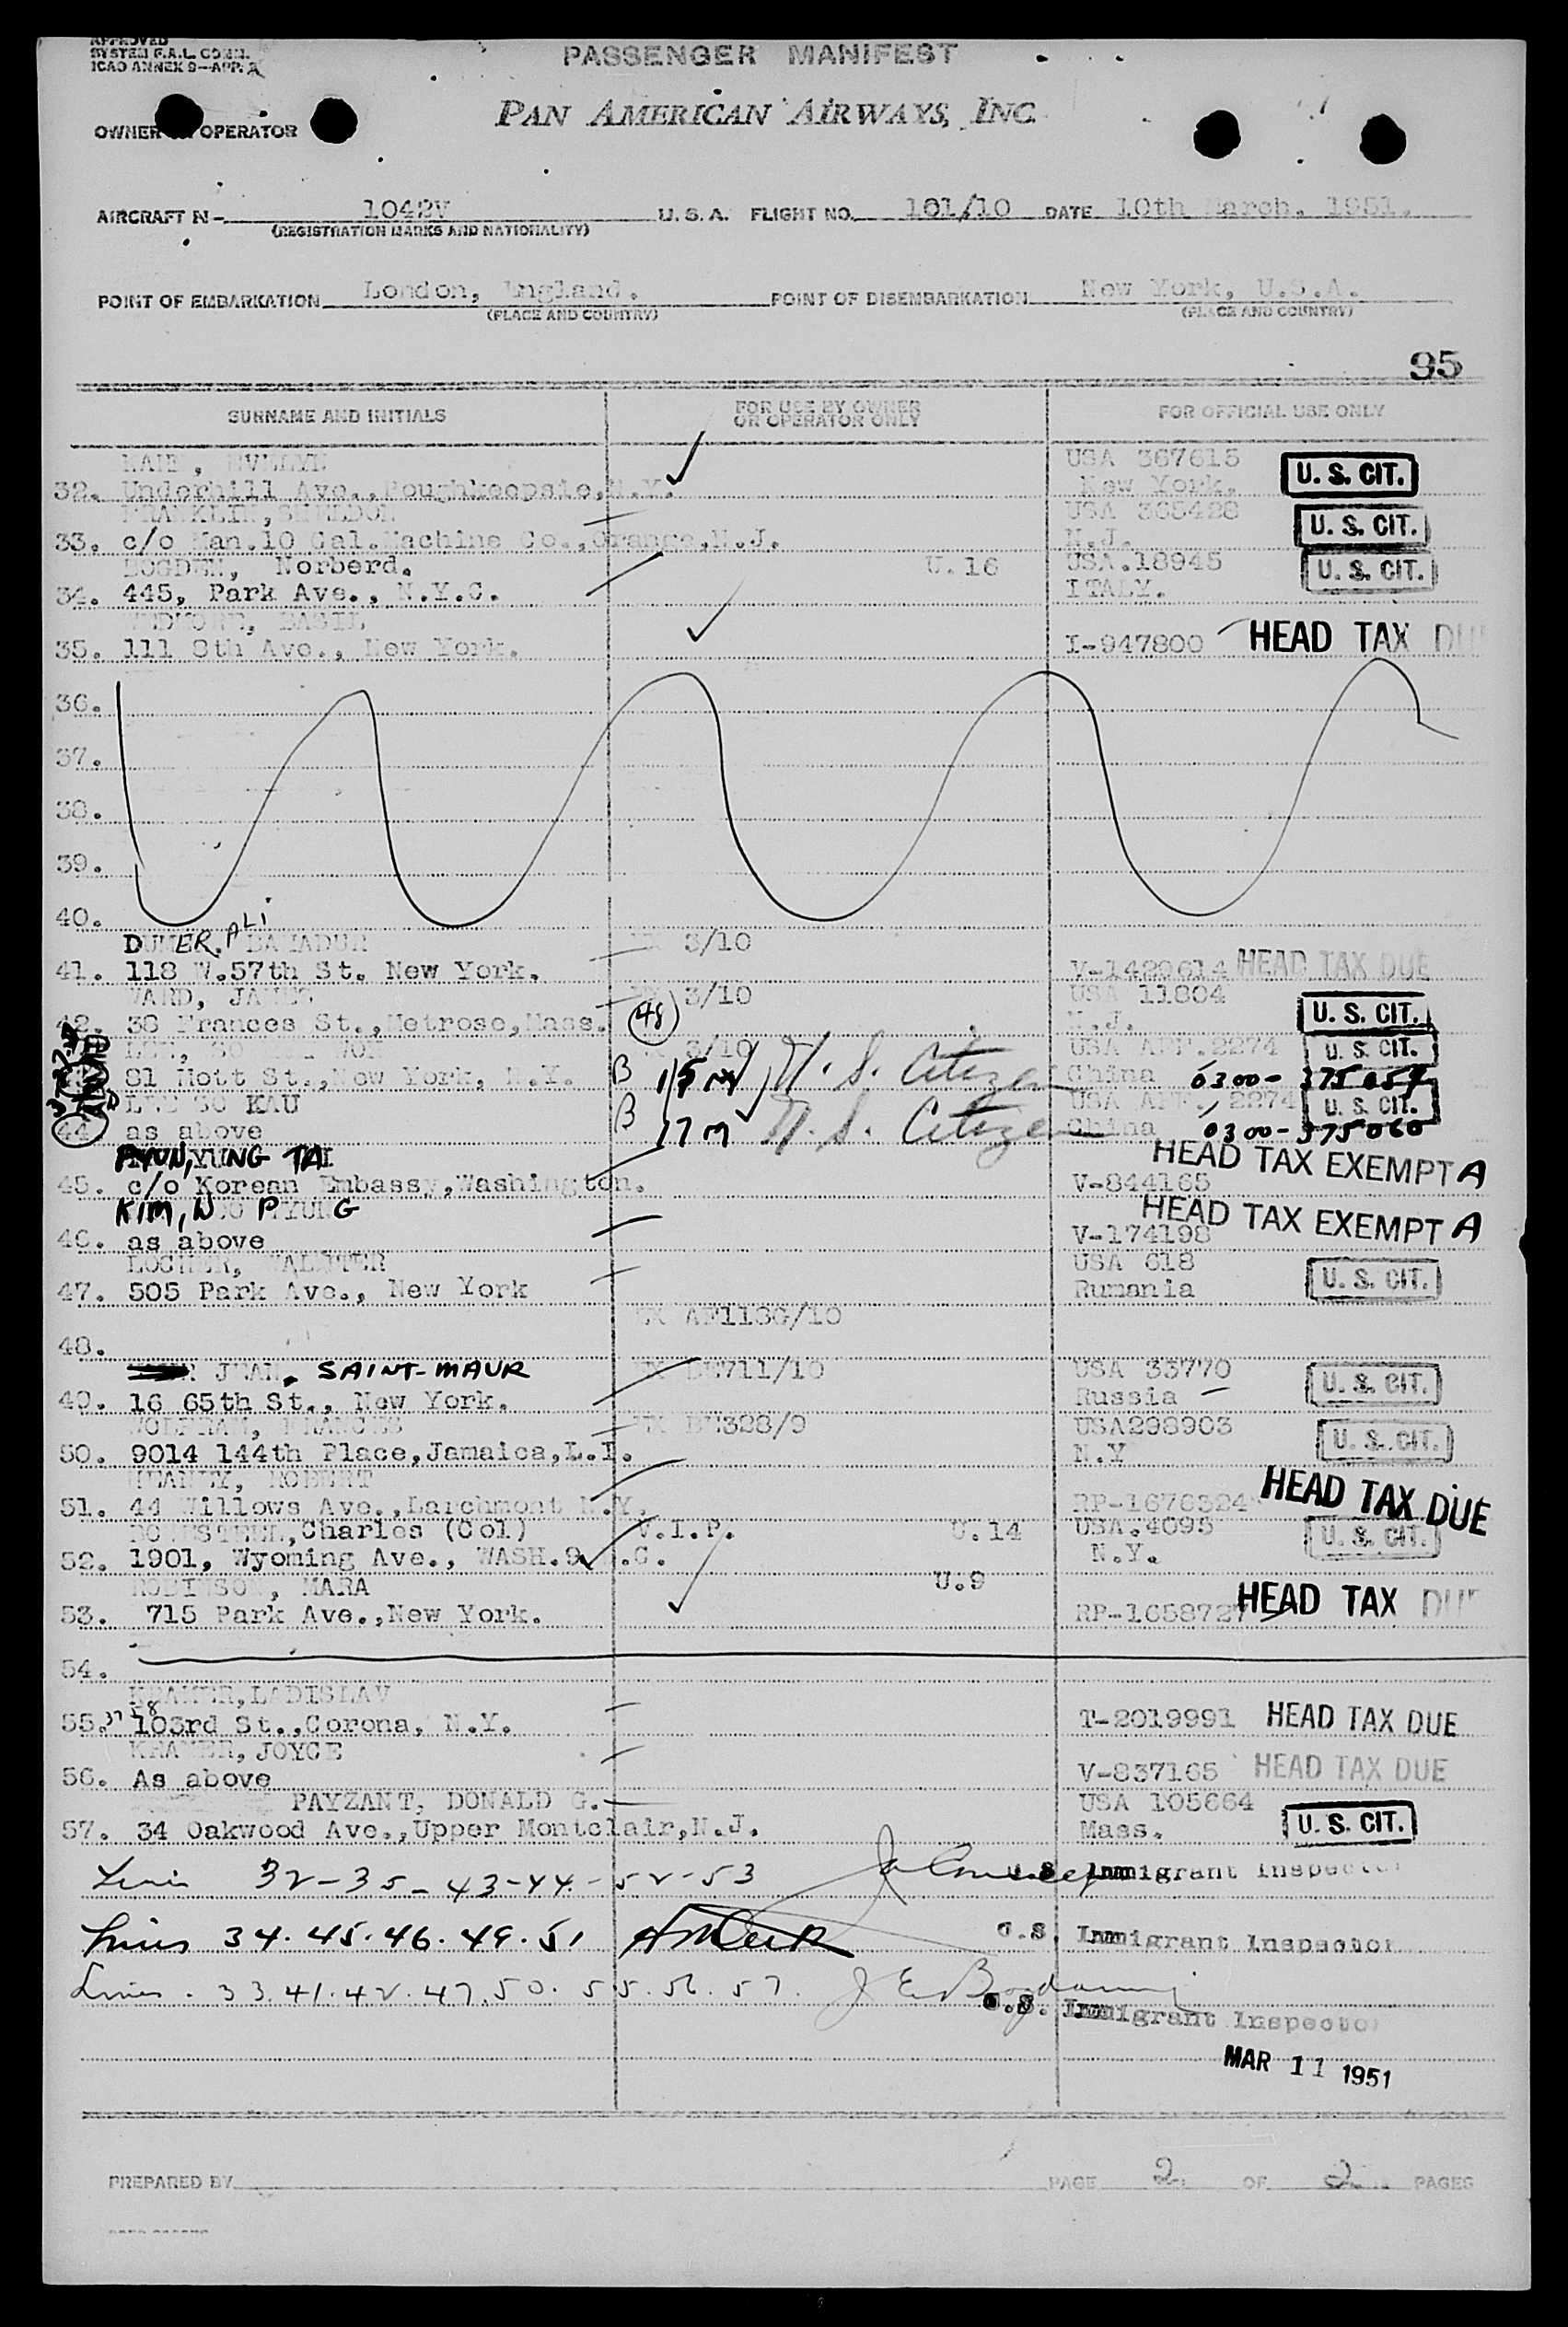 APPROVED
SYSTEM F.A.L. COMM.
ICAO ANNEX 9—APP. 2
PASSENGER MANIFEST
PAN AMERICAN AIRWAYS, INC.
OWNER OPERATOR
AIRCRAFT N- 1042V U. S. A. FLIGHT NO. 101/10 DATE 10th March, 1951.
(REGISTRATION MARKS AND NATIONALITY)
POINT OF EMBARKATION London, England. POINT OF DISEMBARKATION New York, U.S.A.
(PLACE AND COUNTRY) (PLACE AND COUNTRY)
95
SURNAME AND INITIALS FOR USE BY OWNER OR OPERATOR ONLY FOR OFFICIAL USE ONLY
EVELYN USA 367615
32. Underhill Ave., Poughkeepsie, N.Y. New York. U. S. CIT.
FRANKLIN, SHELDON USA 365428
33. c/o Man.10 Cal.Machine Co., Orange, N.J. N.J. U. S. CIT.
BOGDEN, Norberd. U.16 USA.18945
34. 445, Park Ave., N.Y.C. ITALY. U. S. CIT.
BASIL
35. 111 8th Ave., New York. I-947800 HEAD TAX DUE
36.
37.
38.
39.
40.
DUMER, ALI BAHADUR 3/10
41. 118 W.57th St. New York. V-1420614 HEAD TAX DUE
WARD, JAMES 3/10 USA 11804
42. 38 Frances St., Metrose, Mass. (48) N.J. U. S. CIT.
3/10 USA APP.2274 U. S. CIT.
81 Mott St., New York, N.Y. B U. S. Citizen China 0300-
KAU USA APP. 2274 U. S. CIT.
44. as above B 17 M U. S. Citizen China 0300-375060
PYUN, YUNG TAI HEAD TAX EXEMPT A
45. c/o Korean Embassy, Washington. V-844165
KIM, WOO PYUNG HEAD TAX EXEMPT A
46. as above V-174198
LOCHER, USA 618
47. 505 Park Ave., New York Rumania U. S. CIT.
EX AF1136/10
48.
JUAN, SAINT-MAUR 711/10 USA 33770
49. 16 65th St., New York. Russia U. S. CIT.
WOLFRAM, FRANCES 328/9 USA298903
50. 9014 144th Place, Jamaica, L.I. N.Y U. S. CIT.
ROBERT
51. 44 Willows Ave., Larchmont N.Y. RP-1676324 HEAD TAX DUE
Charles (Col) V.I.P. U.14 USA.4095
52. 1901, Wyoming Ave., WASH.9 .C. N.Y. U. S. CIT.
ROBINSON, MARA U.9
53. 715 Park Ave., New York. RP-1658727 HEAD TAX DUE
54.
KRAMER, LADISLAV
55. 3758 103rd St., Corona, N.Y. T-2019991 HEAD TAX DUE
KRAMER, JOYCE
56. As above V-837165 HEAD TAX DUE
PAYZANT, DONALD G. USA 105664
57. 34 Oakwood Ave., Upper Montclair, N.J. Mass. U. S. CIT.
Lines 32-35-43-44-52-53 U.S. Immigrant Inspector
Lines 34.45.46.49.51 U.S. Immigrant Inspector
Lines. 33.41.42.47.50.55.56.57. U.S. Immigrant Inspector
MAR 11 1951
PREPARED BY PAGE 2 OF 2 PAGES